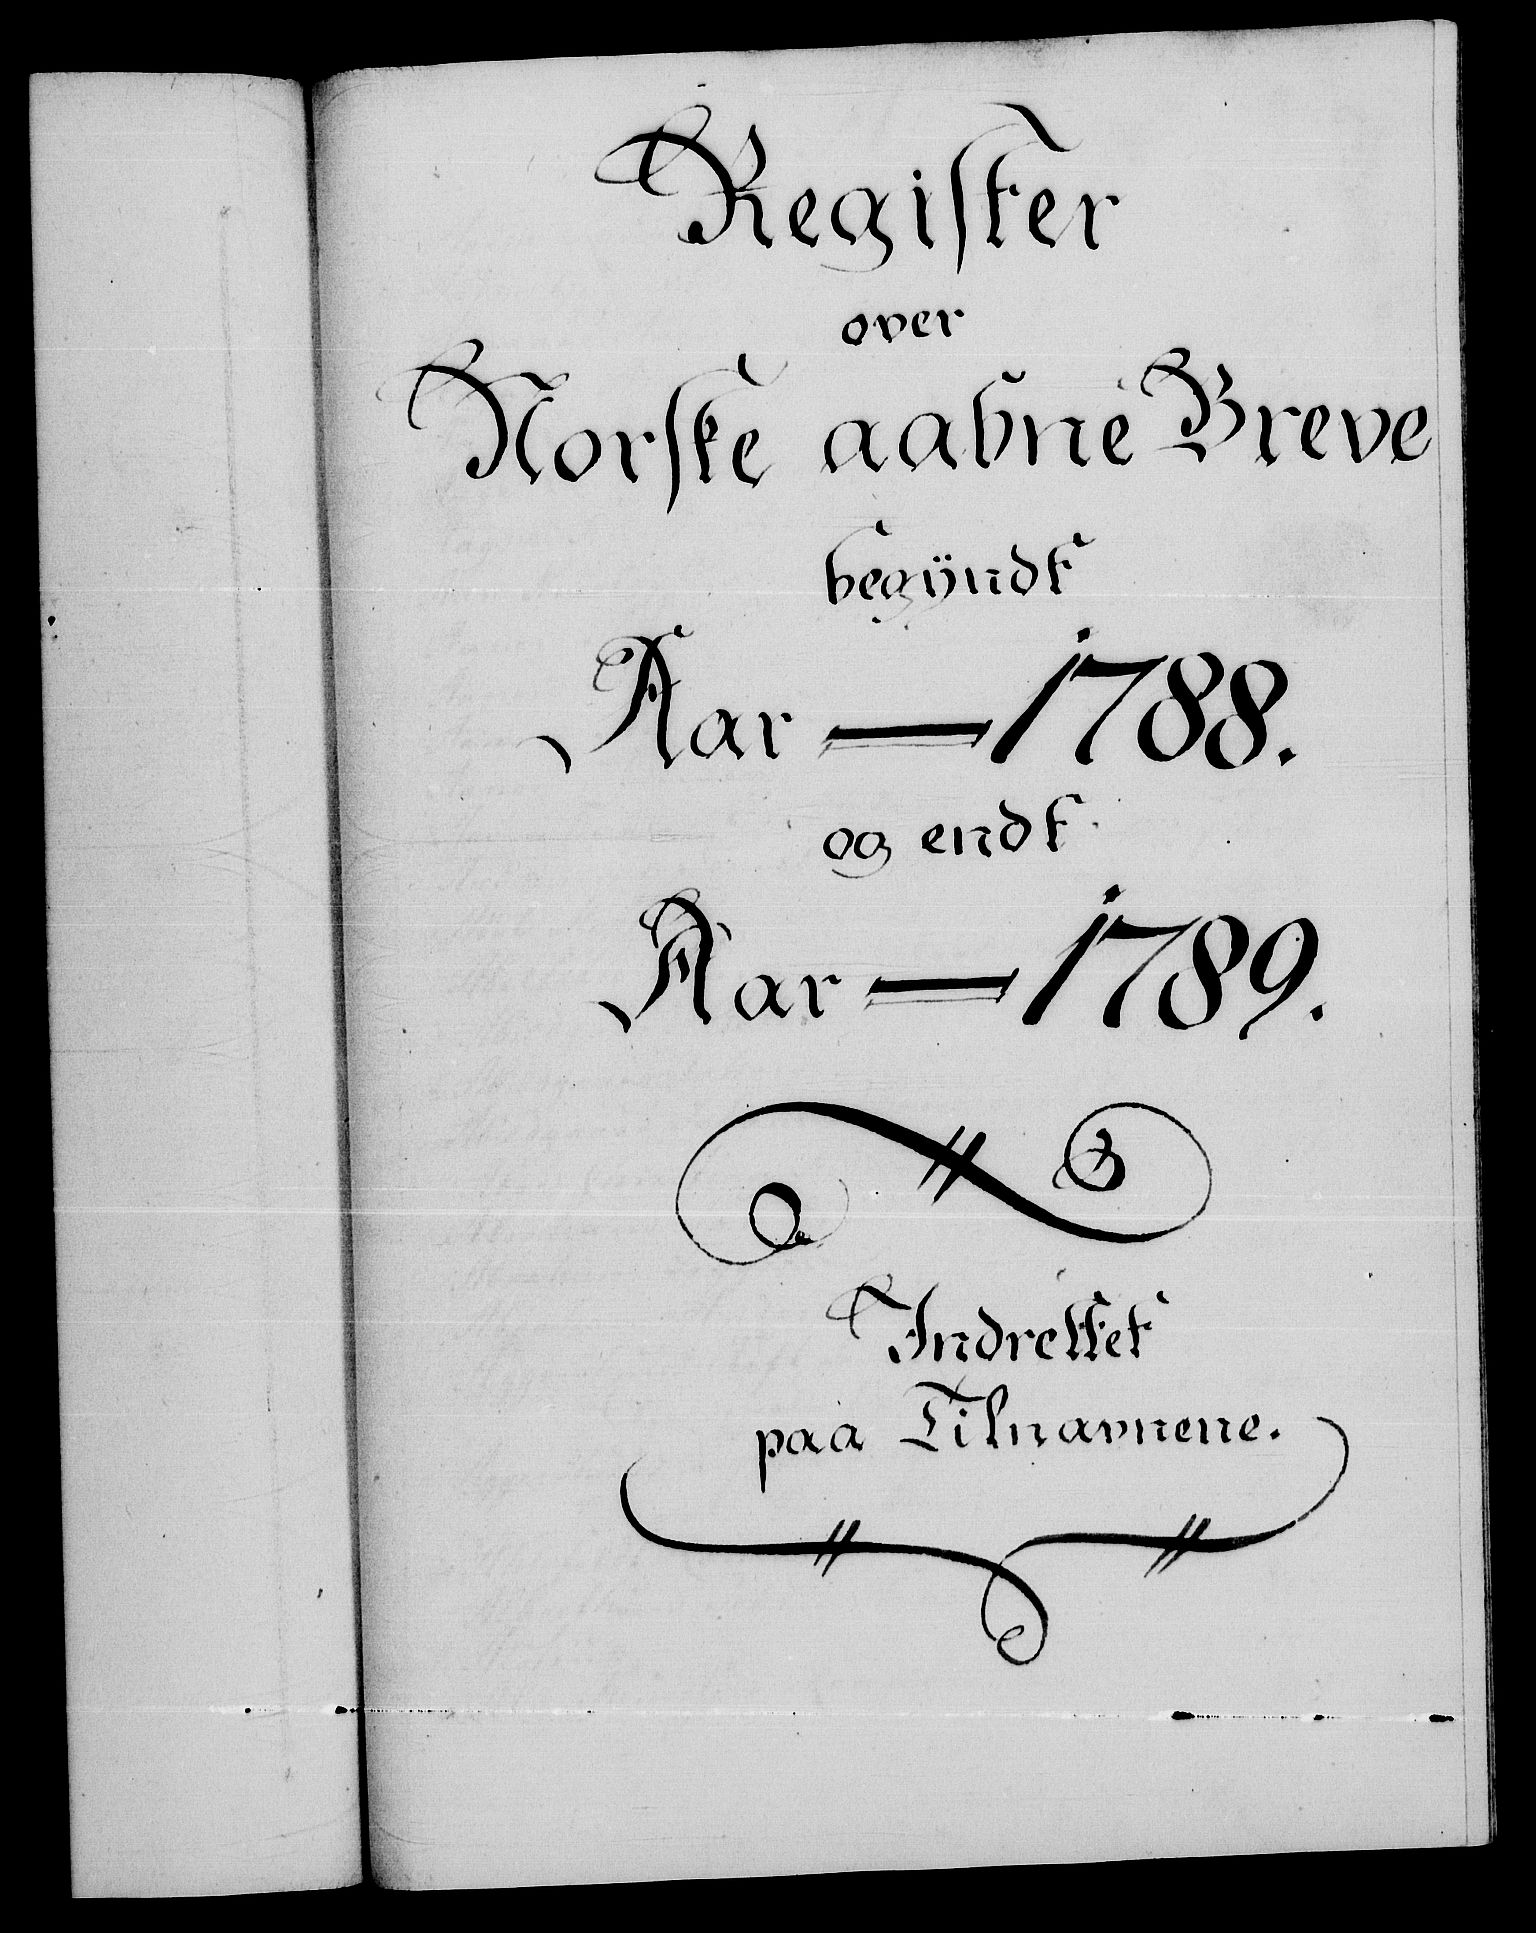 Register
over
Norske aabne Breve
begÿndt
Aar — 1788.
og endt
Aar — 1789.
Indrettet
paa Tilnavnene.